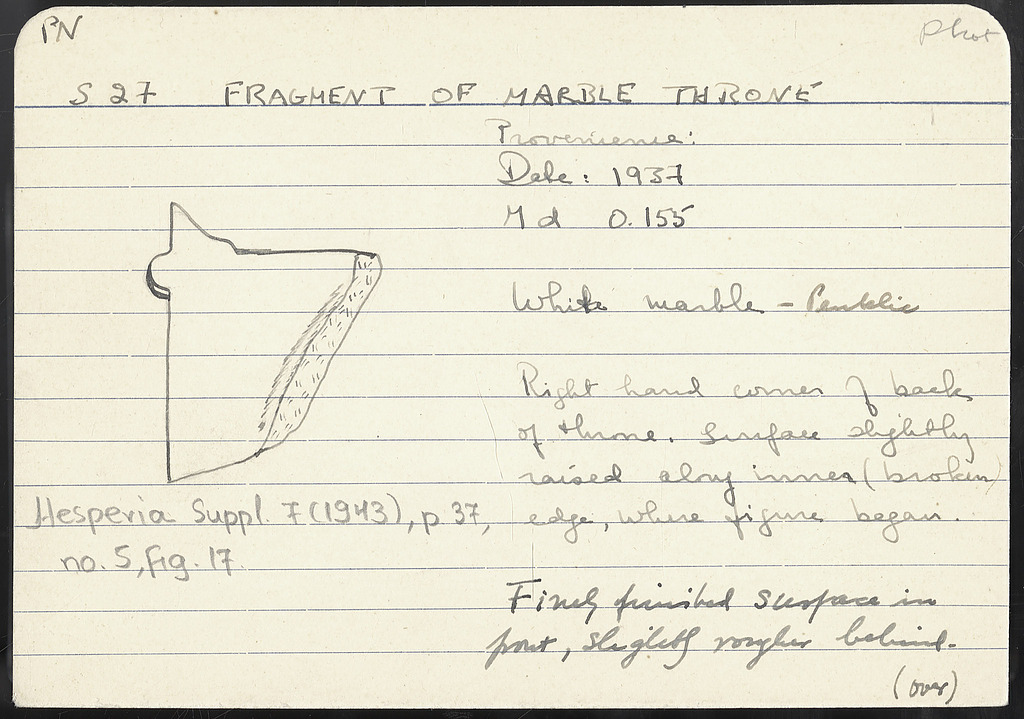 PN
Phot
S 27 FRAGMENT OF MARBLE THRONE
Provenience:
Date: 1937
M d 0.155
White marble - Pentelic
Right hand corner of back
of throne. Surface slightly
raised along inner (broken)
edge, where figure began.
Hesperia Suppl. 7 (1943), p 37,
no. 5, fig. 17.
Finely finished surface in
front, slightly rougher behind.
(over)